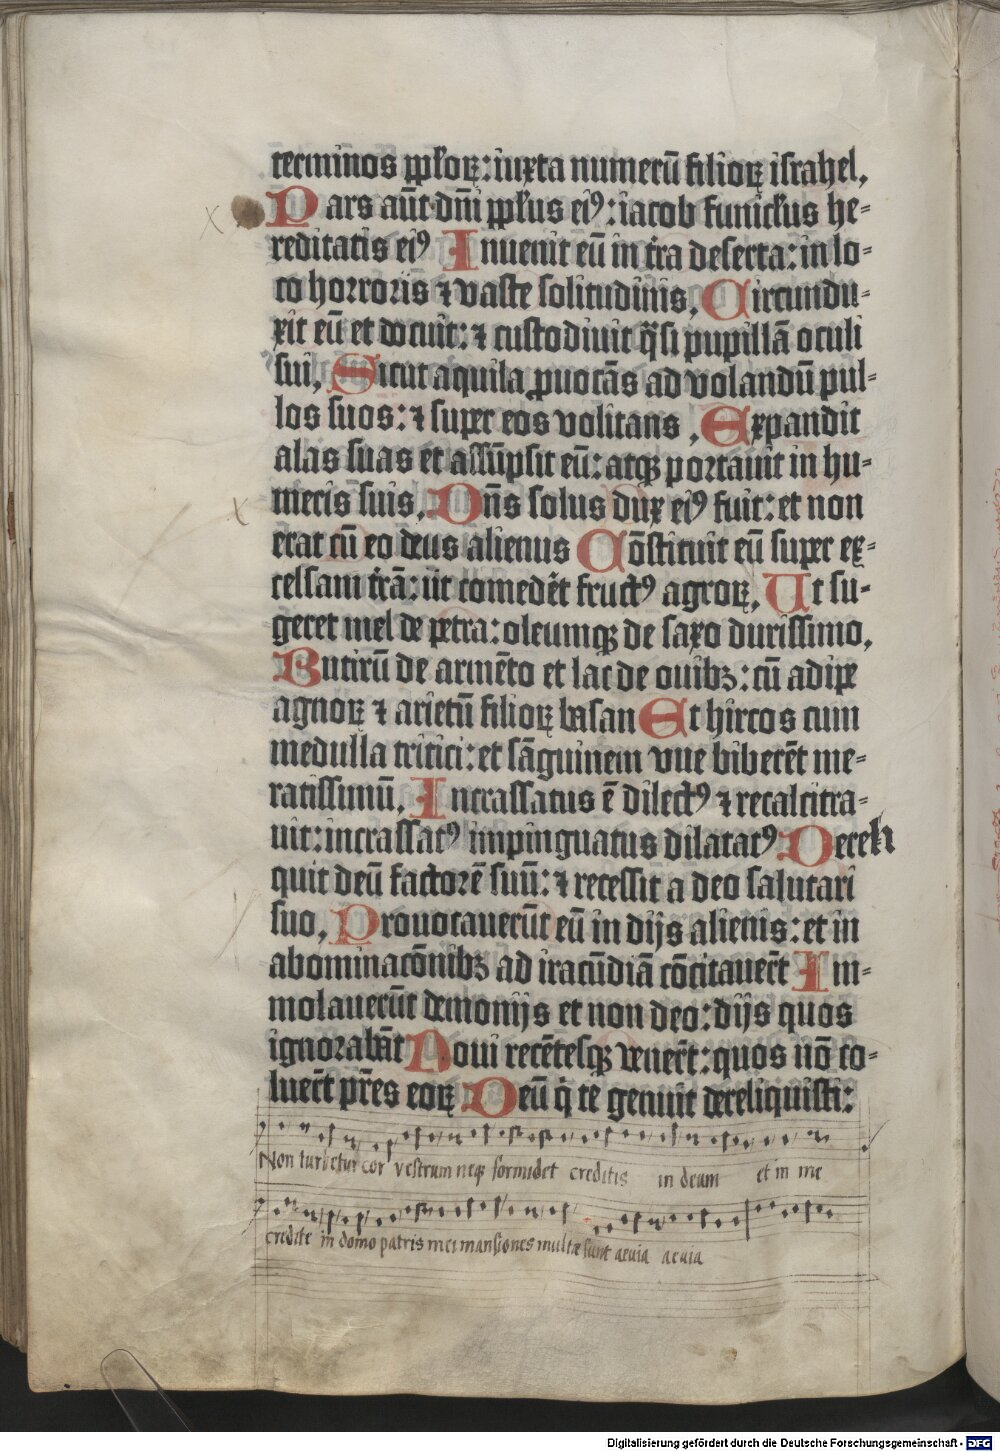 terminos pp̄lorꝝ: iuxta numerū filiorꝝ israhel.
Pars aūt dn̄i pp̄lus ei⁹: iacob funiclus he-
reditatis ei⁹ Inuenit eū in t̄ra deserta: in lo-
co horroris ⁊ vaste solitudinis. Circundu-
xit eū et docuit: ⁊ custodiuit q̄si pupillā oculi
sui. Sicut aquila ꝓuocās ad volandū pul-
los suos: ⁊ super eos volitans. Expandit
alas suas et assūpsit eū: atqꝫ portauit in hu-
meris suis. Dn̄s solus dux ei⁹ fuit: et non
erat cū eo deus alienus Cōstituit eū super ex-
celsam t̄rā: ut comedēt fruct⁹ agrorꝝ. Ut su-
geret mel de petra: oleumqꝫ de saxo durissimo.
Butirū de armēto et lac de ouibꝫ: cū adipe
agnorꝝ ⁊ arietū filiorꝝ basan Et hircos cum
medulla tritici: et sāguinem vue biberēt me-
ratissimū. Incrassatus ē dilect⁹ ⁊ recalcitra-
uit: incrassat⁹ impinguatus dilatat⁹ Dereli
quit deū factorē suū: ⁊ recessit a deo salutari
suo. Prouocauerūt eū in dijs alienis: et in
abominacōnibꝫ ad iracūdiā cōcitauer̄t Im-
molauerūt demonijs et non deo: dijs quos
ignorabāt Noui recētesqꝫ vener̄t: quos nō co-
luer̄t pr̄es eorꝝ Deū q̄ te genuit dereliquisti:
Non turbetur cor vestrum neqꝫ formidet creditis in deum et in me
credite in domo patris mei mansiones multæ sunt aeuia aeuia
Digitalisierung gefördert durch die Deutsche Forschungsgemeinschaft - DFG